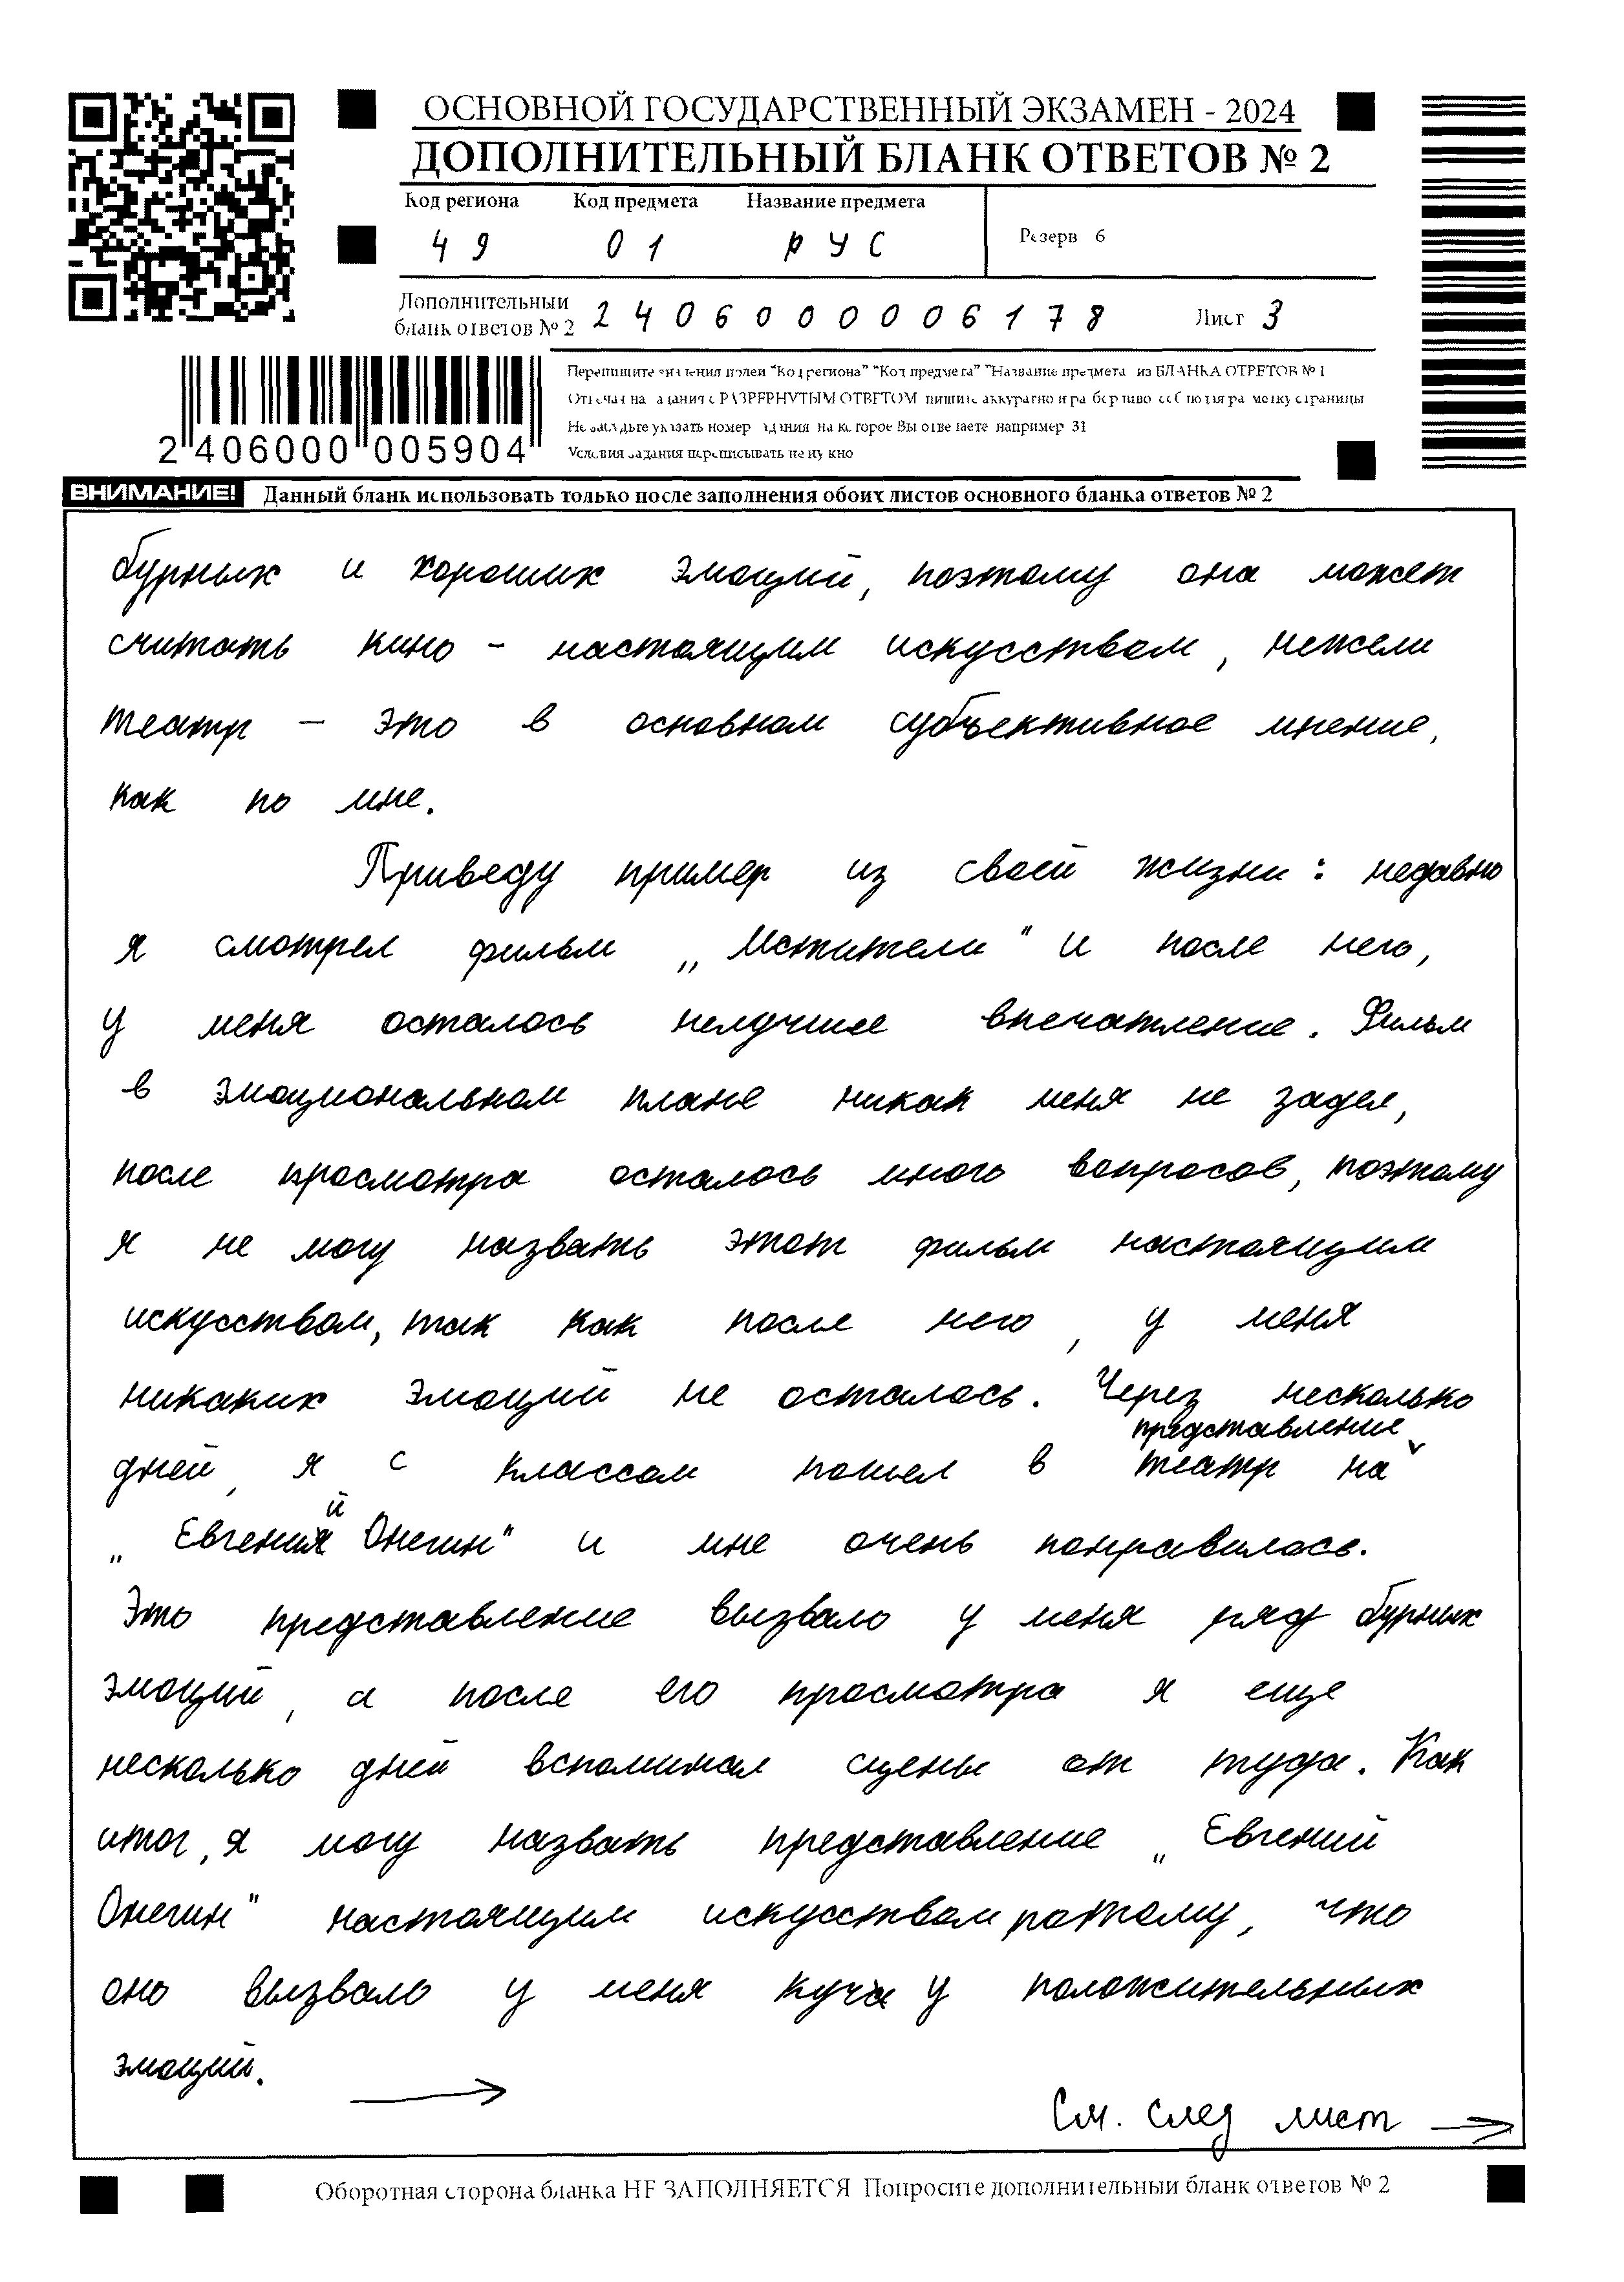 ОСНОВНОЙ ГОСУДАРСТВЕННЫЙ ЭКЗАМЕН - 2024
ДОПОЛНИТЕЛЬНЫЙ БЛАНК ОТВЕТОВ № 2
Код региона Код предмета Название предмета
Резерв 6
49 01 РУС
Дополнительный
бланк ответов № 2 2406000006178 Лист 3
Перепишите значения полей "Код региона" "Код предмета" "Название предмета" из БЛАНКА ОТВЕТОВ № 1
Отвечая на задания с РАЗВЕРНУТЫМ ОТВЕТОМ пишите аккуратно и разборчиво соблюдая разметку страницы
Не забудьте указать номер задания на которое Вы отвечаете например 31
Условия задания переписывать не нужно
2 406000 005904
ВНИМАНИЕ! Данный бланк использовать только после заполнения обоих листов основного бланка ответов № 2
бурных и хороших эмоций, поэтому она может
считать кино - настоящим искусством, нежели
театр – это в основном субъективное мнение,
как по мне.
Приведу пример из своей жизни: недавно
я смотрел фильм „Мстители" и после него,
у меня осталось нелучшее впечатление. Фильм
в эмоциональном плане никак меня не задел,
после просмотра осталось много вопросов, поэтому
я не могу назвать этот фильм настоящим
искусством, так как после него, у меня
никаких эмоций не осталось. Через несколько
представление
дней, я с классом пошел в театр на
„Евгений Онегин" и мне очень понравилось.
Это представление вызвало у меня ряд бурных
эмоций, а после его просмотра я еще
несколько дней вспоминал сцены от туда. Как
итог, я могу назвать представление „Евгений
Онегин" настоящим искусством потому, что
оно вызвало у меня кучу положительных
эмоций.
См. след лист
Оборотная сторона бланка НЕ ЗАПОЛНЯЕТСЯ Попросите дополнительный бланк ответов № 2